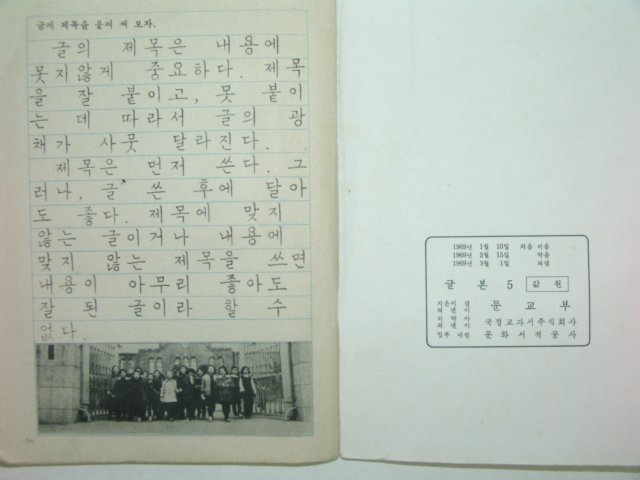 글에 제목을 붙여 써 보자.
글의 제목은 내용에
못지않게 중요하다. 제목
을 잘 붙이고, 못 붙이
는 데 따라서 글의 광
채가 사뭇 달라진다.
제목은 먼저 쓴다. 그
러나, 글 쓴 후에 달아
도 좋다. 제목에 맞지
않는 글이거나 내용에
맞지 않는 제목을 쓰면
내용이 아무리 좋아도
잘 된 글이라 할 수
없다.
1969년 1월 10일 처음 지음
1969년 2월 15일 박음
1969년 3월 1일 펴냄
글본 5 값 원
지은이 겸 펴낸이 문교부
박아 펴낸이 국정교과서주식회사
업무 대행 문화서적공사